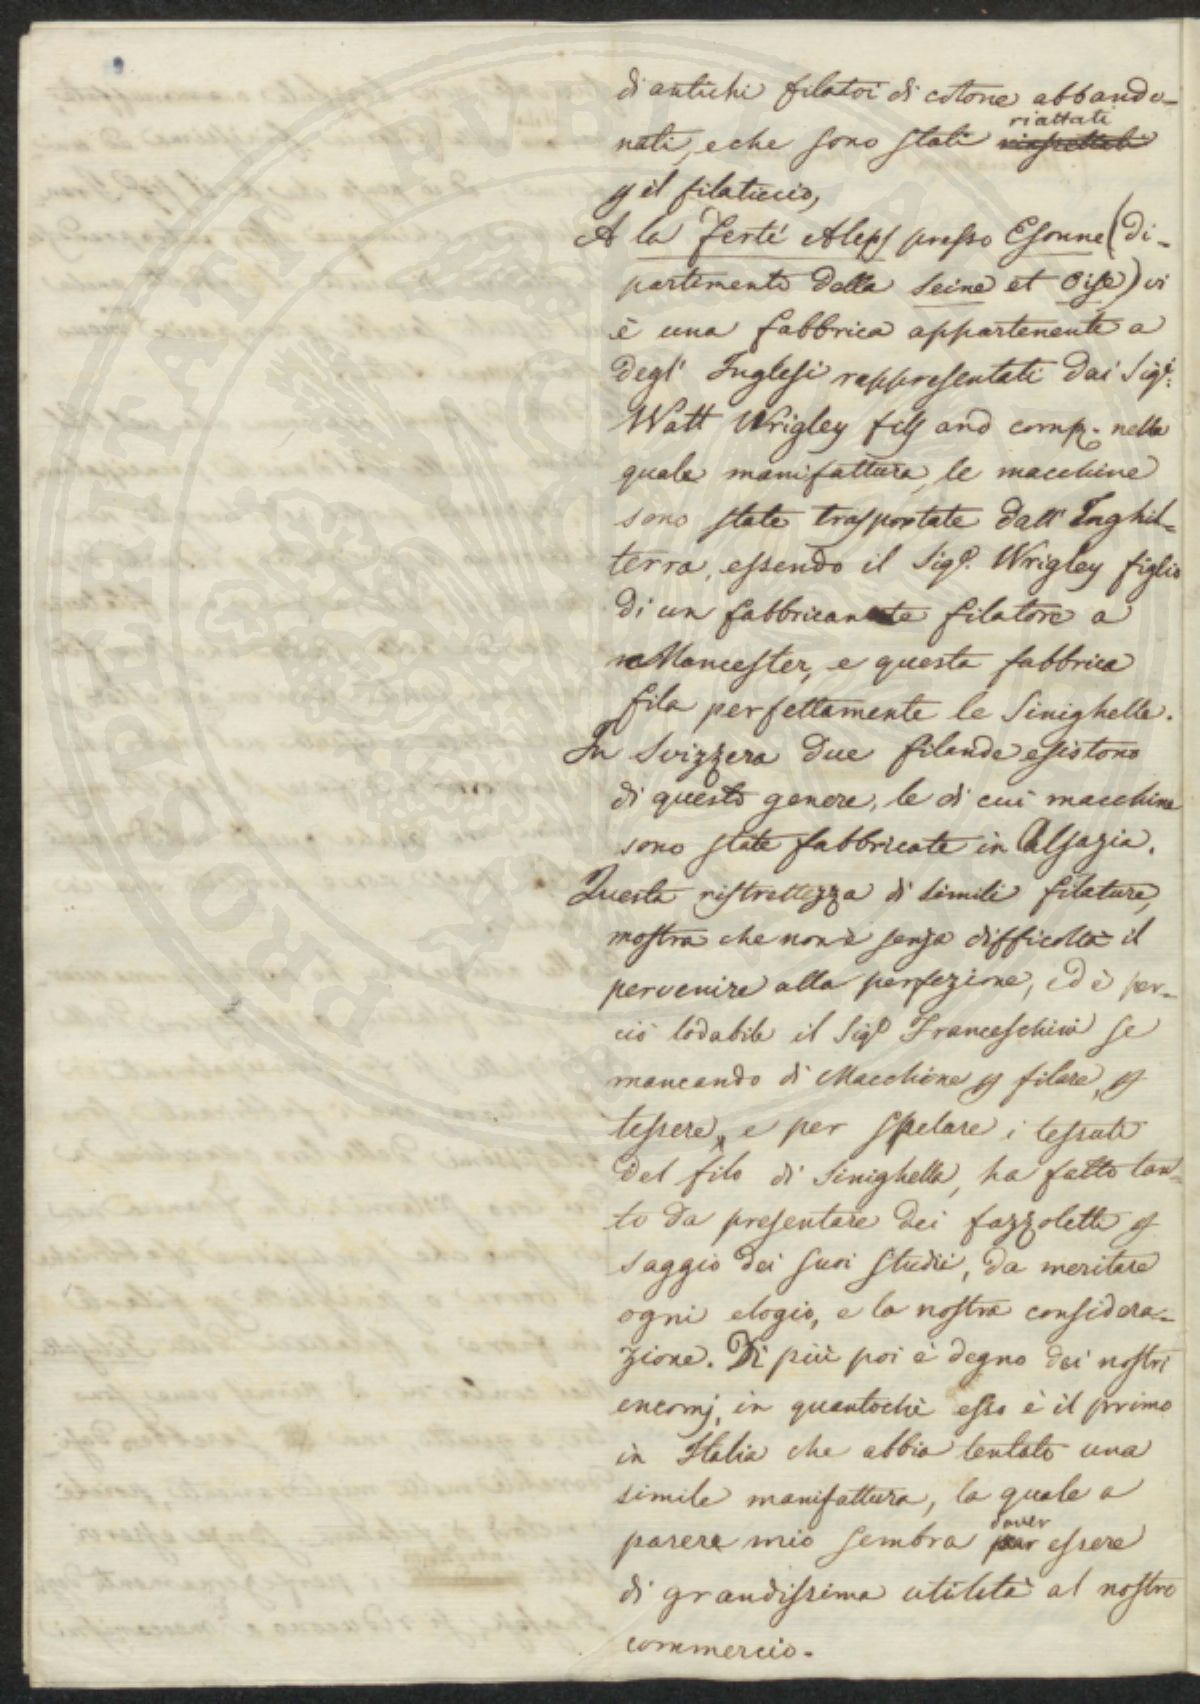 di antichi filatoi di cotone abbando-
nati, e che sono stati riattati
il filaticcio,
A la Ferté Aleps presso Esonne (di-
partimento della Seine et Oise) vi
è una fabbrica appartenente a
degl' Inglesi rappresentati dai Sigi:
Watt Wrigley fils and comp. nella
quale manifattura, le macchine
sono state trasportate dall' Inghil-
terra, essendo il Sigr. Wrigley figlio
di un fabbricante filatore a
Mancester, e questa fabbrica
fila perfettamente le Sinighelle.
In Svizzera due filande esistono
di questo genere, le di cui macchine
sono state fabbricate in Alsazia.
Questa ristrettezza di simili filature,
mostra che non è senza difficoltà il
pervenire alla perfezione, ed è per-
ciò lodabile il Sigr Franceschini se
mancando di Macchine filare,
tessere, e per spelare i tessuti
del filo di Sinighella, ha fatto tan-
to da presentare dei fazzoletti
saggio dei suoi studii, da meritare
ogni elogio, e la nostra considera-
zione. Di più poi è degno dei nostri
encomj, in quantochè esso è il primo
in Italia che abbia tentato una
simile manifattura, la quale a
parere mio sembra dover essere
di grandissima utilità al nostro
commercio.